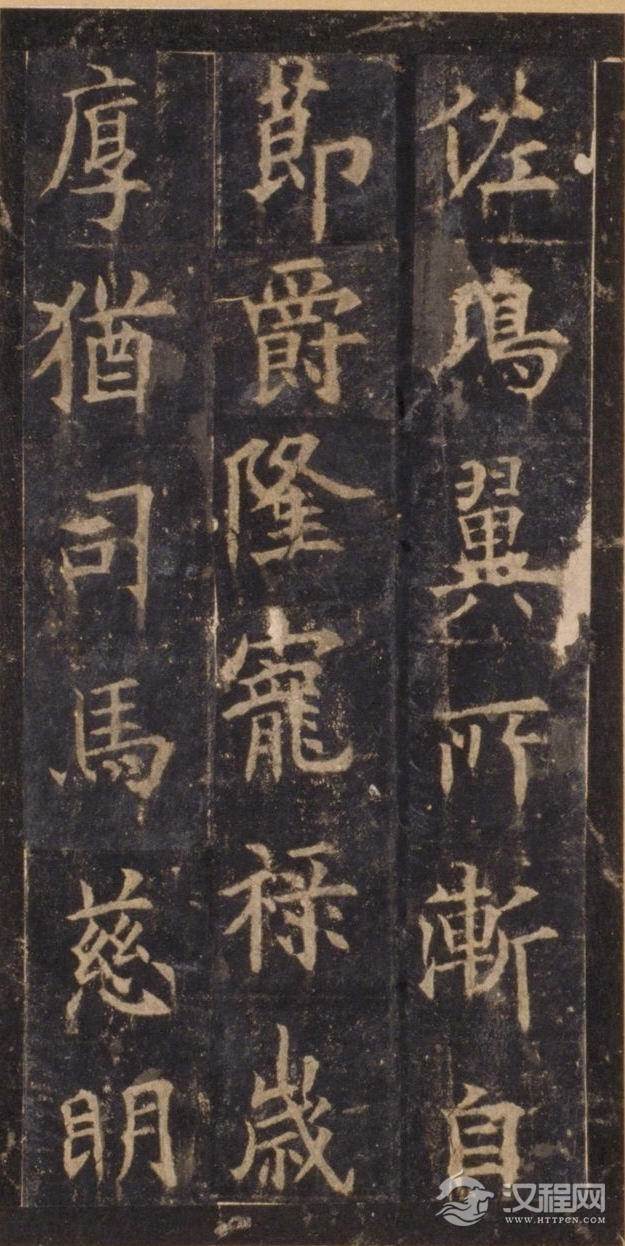 佐鴻翼所漸自
節爵隆寵祿歲
厚猶司馬慈明
汉程网
WWW.HTTPCN.COM